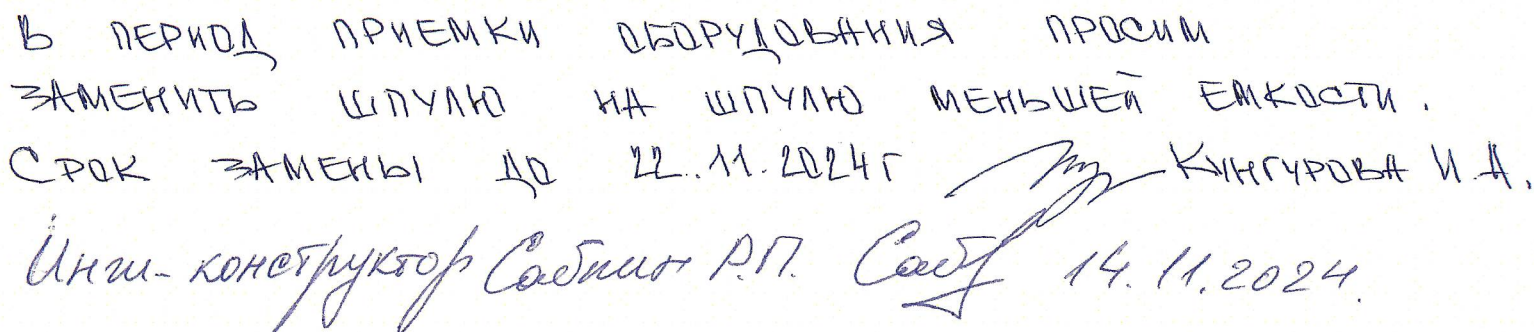 В ПЕРИОД ПРИЕМКИ ОБОРУДОВАНИЯ ПРОСИМ
ЗАМЕНИТЬ ШПУЛЮ НА ШПУЛЮ МЕНЬШЕЙ ЕМКОСТИ.
СРОК ЗАМЕНЫ ДО 22.11.2024г КУНГУРОВА И.А.
Инж-конструктор Р.П. 14.11.2024.